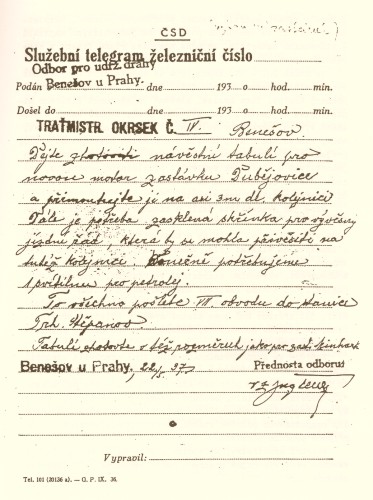 ČSD
Služební telegram železniční číslo
Odbor pro udrž. dráhy
Podán Benešov u Prahy. dne 193 o hod. min.
Došel do dne 193 o hod. min.
TRAŤMISTR. OKRSEK Č. IV. Benešov
Dejte zhotoviti návěstní tabuli pro
novou motor zastávku Tubějovice
a přimontujte je na asi 3m dl. kolejnici
Dále je potřeba zasklená skřínka pro vývěsný
jízdní řád, která by se mohla přivěsiti na
tutéž kolejnici. Konečně potřebujeme
1 svítilnu pro petrolej.
To všechno pošlete VII obvodu do stanice
Trh. Štěpánov.
Tabuli zhotovte o též rozměrech jako pro zast.
Benešov u Prahy. 22/5 37. Přednosta odboru:
Vypravil:
Tel. 101 (20136 a). — G. P. IX. 36.